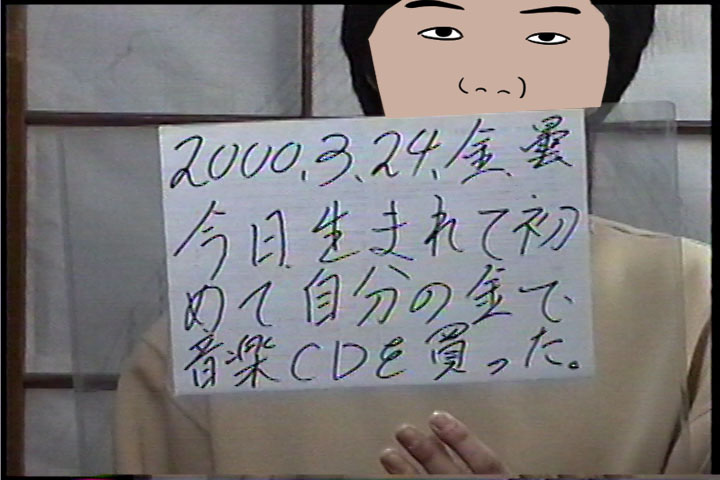 2000.3.24.金.曇
今日生まれて初
めて自分の金で
音楽CDを買った。